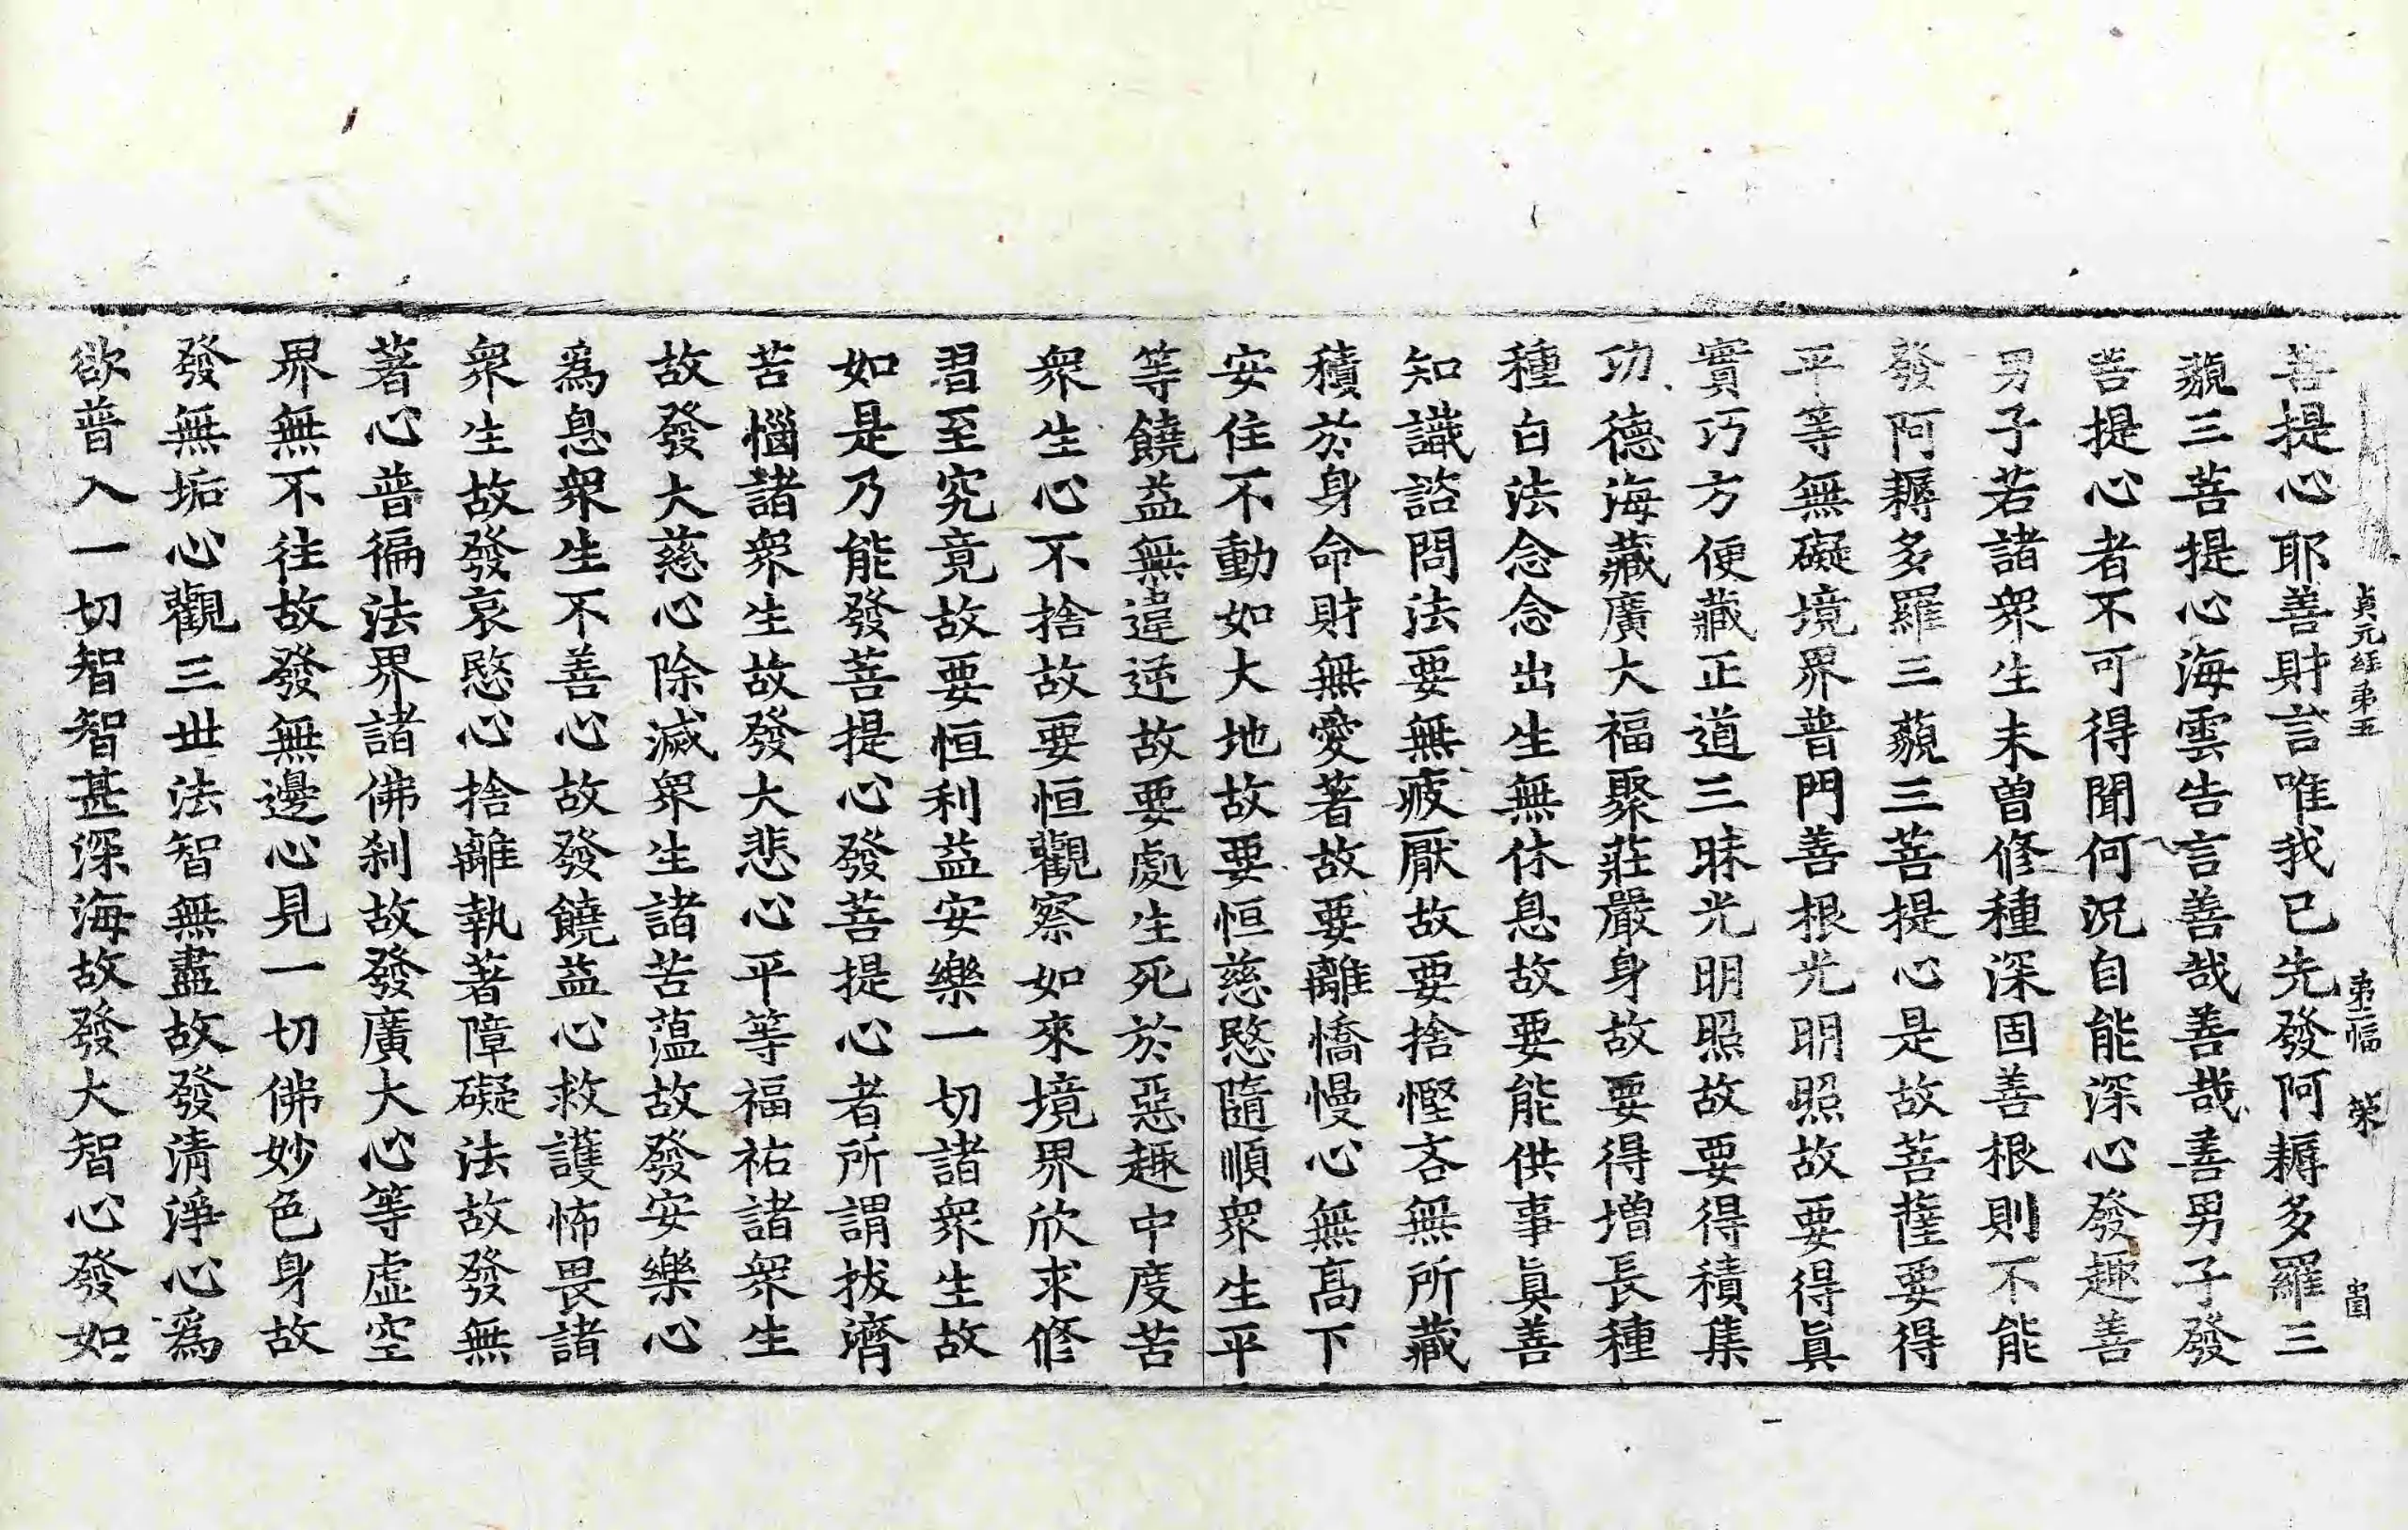 貞元経苐五 苐二幅 荣
菩提心耶善財言唯我已先發阿耨多羅三
藐三菩提心海雲告言善哉善哉善男子發
菩提心者不可得聞何況自能深心發趣善
男子若諸衆生未曽修種深固善根則不能
發阿耨多羅三藐三菩提心是故菩薩要得
平等無礙境界普門善根光明照故要得眞
實巧方便藏正道三昧光明照故要得積集
功德海藏廣大福聚莊嚴身故要得增長種
種白法念念出生無休息故要能供事眞善
知識諮問法要無疲厭故要捨慳吝無所藏
積於身命財無愛著故要離憍慢心無髙下
安住不動如大地故要恒慈愍隨順衆生平
等饒益無違逆故要處生死於惡趣中度苦
衆生心不捨故要恒觀察如來境界欣求修
習至究竟故要恒利益安樂一切諸衆生故
如是乃能發菩提心發菩提心者所謂拔濟
苦惱諸衆生故發大悲心平等福祐諸衆生
故發大慈心除滅衆生諸苦蕰故發安樂心
為息衆生不善心故發饒益心救護怖畏諸
衆生故發哀愍心捨離執著障礙法故發無
著心普徧法界諸佛刹故發廣大心等虛空
界無不往故發無邊心見一切佛妙色身故
發無垢心觀三世法智無盡故發清淨心爲
欲普入一切智智甚深海故發大智心發如